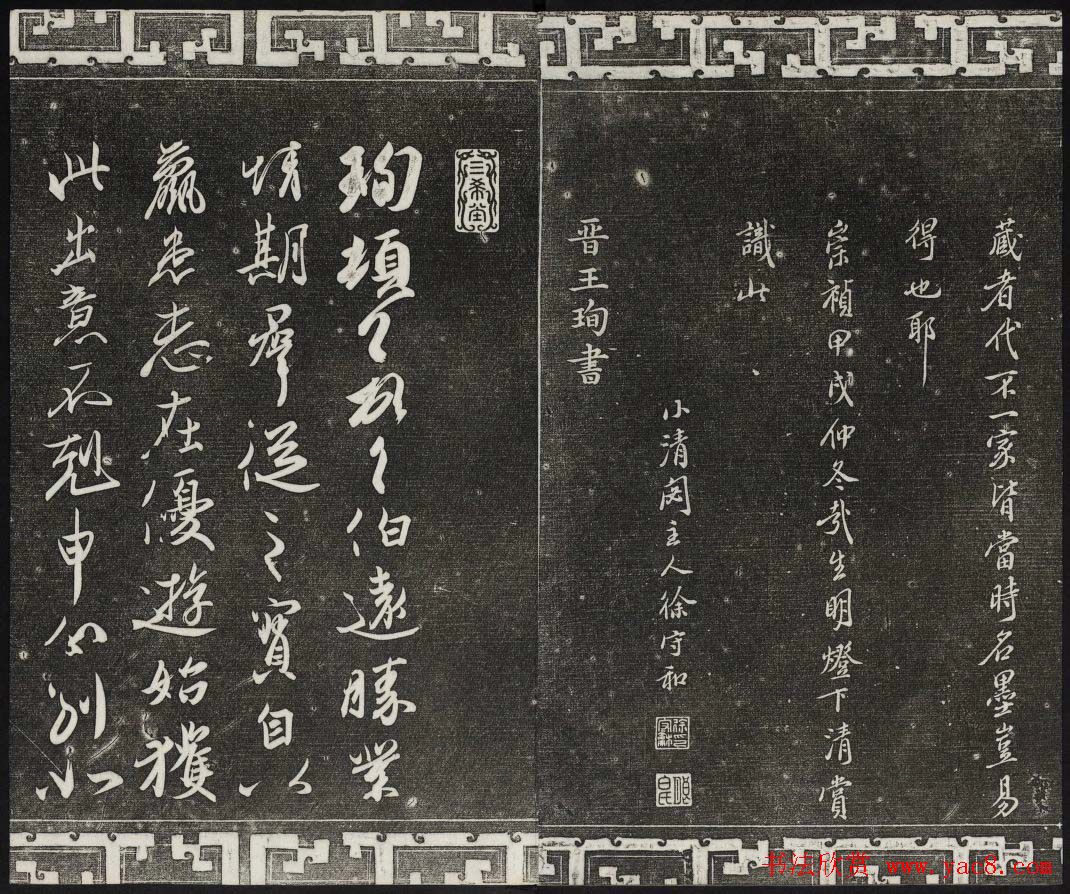 藏者代不一家皆當時名墨豈易
得也耶
崇禎甲戌仲冬哉生明燈下清賞
識此
小清閟主人徐守和
晉王珣書
三希堂
珣頓首頓首伯遠勝業
情期羣從之寶自以
羸患志在優遊始獲
此出意不剋申分別如
书法欣赏 www.yac8.com